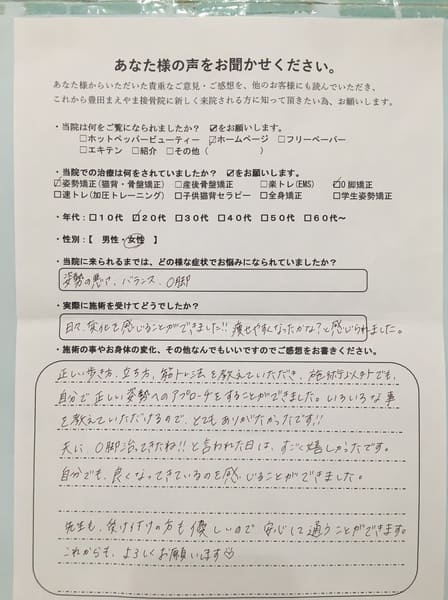 あなた様の声をお聞かせください。
あなた様からいただいた貴重なご意見・ご感想を、他のお客様にも読んでいただき、
これから豊田まえやま接骨院に新しく来院される方に知って頂きたい為、お願いします。
・当院は何をご覧になられましたか？ ☑をお願いします。
□ホットペッパービューティー ☑ホームページ □フリーペーパー
□エキテン □紹介 □その他（ ）
・当院での治療は何をされていますか？ ☑をお願いします。
☑姿勢矯正(猫背・骨盤矯正) □産後骨盤矯正 □楽トレ(EMS) ☑O脚矯正
□速トレ(加圧トレーニング) □子供猫背セラピー □全身矯正 □学生姿勢矯正
・年代：□10代 ☑20代 □30代 □40代 □50代 □60代～
・性別：【 男性・女性 】
・当院に来られるまでは、どの様な症状でお悩みになられていましたか？
姿勢の悪さ、バランス、O脚
・実際に施術を受けてどうでしたか？
日々、変化を感じることができました!! 痩せやすくなったかな？と感じられました。
・施術の事やお身体の変化、その他なんでもいいですのでご感想をお書きください。
正しい歩き方、立ち方、筋トレ法を教えていただき、施術以外でも、
自分で正しい姿勢へのアプローチをすることができました。いろいろな事
を教えていただけるので、とてもありがたかったです!!
夫に O脚治ってきたね!! と言われた日は、すごく嬉しかったです。
自分でも、良くなってきているのを感じることができました。
先生も、受け付けの方も優しいので 安心して通うことができます。
これからも、よろしくお願います♡